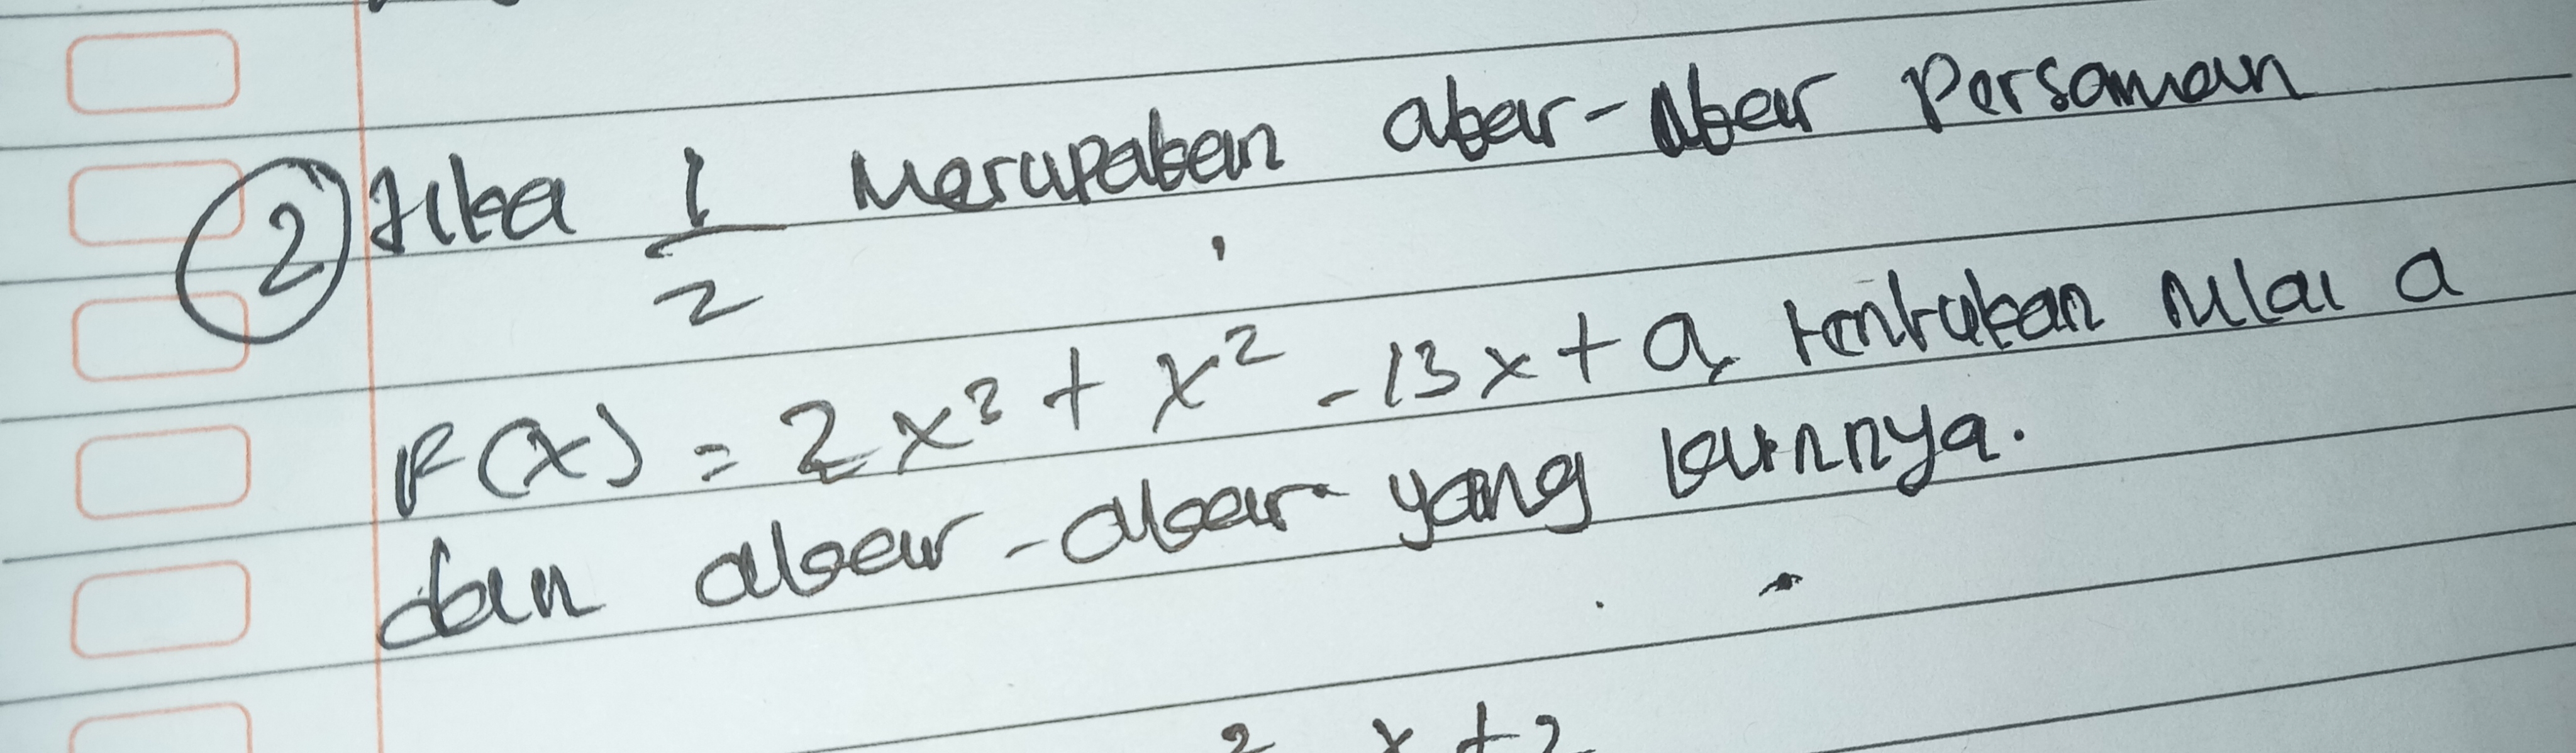 ② Jika 1/2 Merupakan akar-Akar Persamaan
F(x) = 2x³ + x² - 13x + a, tentukan nilai a
dan akar-akar yang lainnya.
² x + 2